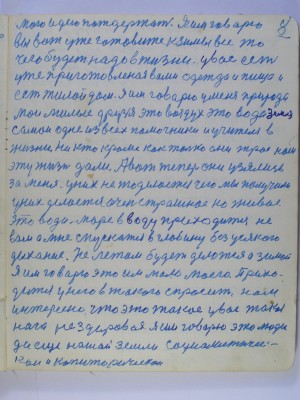 мого идею потдержат. Я им говарю
вы вот уже готовите к зимы все то
чево будет надо в жизни. увас есть
уже приготовленая вами одежда и пища и
есть жилой дом. Я им говарю уменя природа
мои милые друзя это воздух это вода земля
самои одне из всех помочники и учителя в
жизни. Ни кто кроме как только они трое нам
эту жизнь дали. А вот теперь они узялись
за меня. уних не то делается чего мы получаем
уних делается очен страшное но живое
это вода море в воду приходится не
вам а мне спускатся в глобину без усякого
дыхания. Не летом будет делотся а зимой
Я им говарю это им мало моего. Прихо-
дется у ного в такого спросить, нам
интересно, что это такое увас такая
нага нездоровая Я им говарю это люди
да еще нашей земли социалистичес-
кои и капиторическои